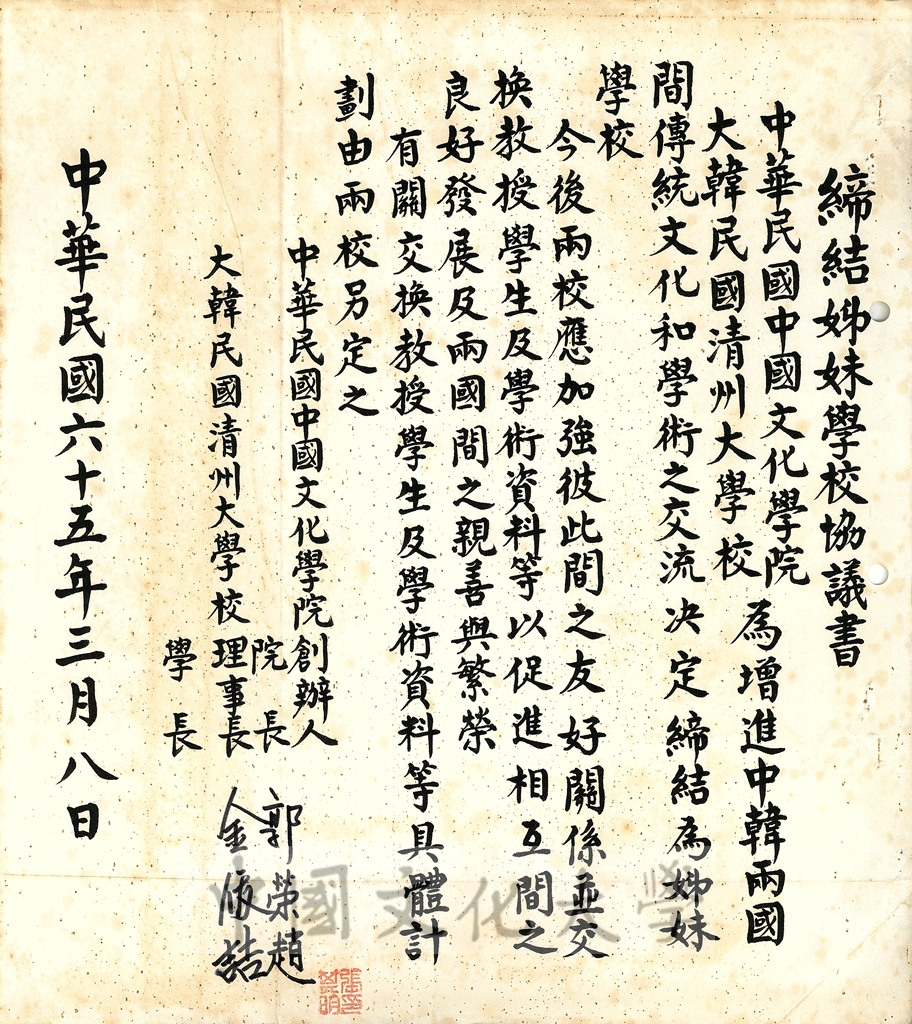 締結姊妹學校協議書
中華民國中國文化學院
大韓民國清州大學校
為增進中韓兩國
間傳統文化和學術之交流決定締結為姊妹
學校
今後兩校應加強彼此間之友好關係並交
換教授學生及學術資料等以促進相互間之
良好發展及兩國間之親善與繁榮
有關交換教授學生及學術資料等具體計
劃由兩校另定之
中華民國中國文化學院創辦人
院長
郭榮趙
大韓民國清州大學校理事長
學長
金
中華民國六十五年三月八日
中國文化大學